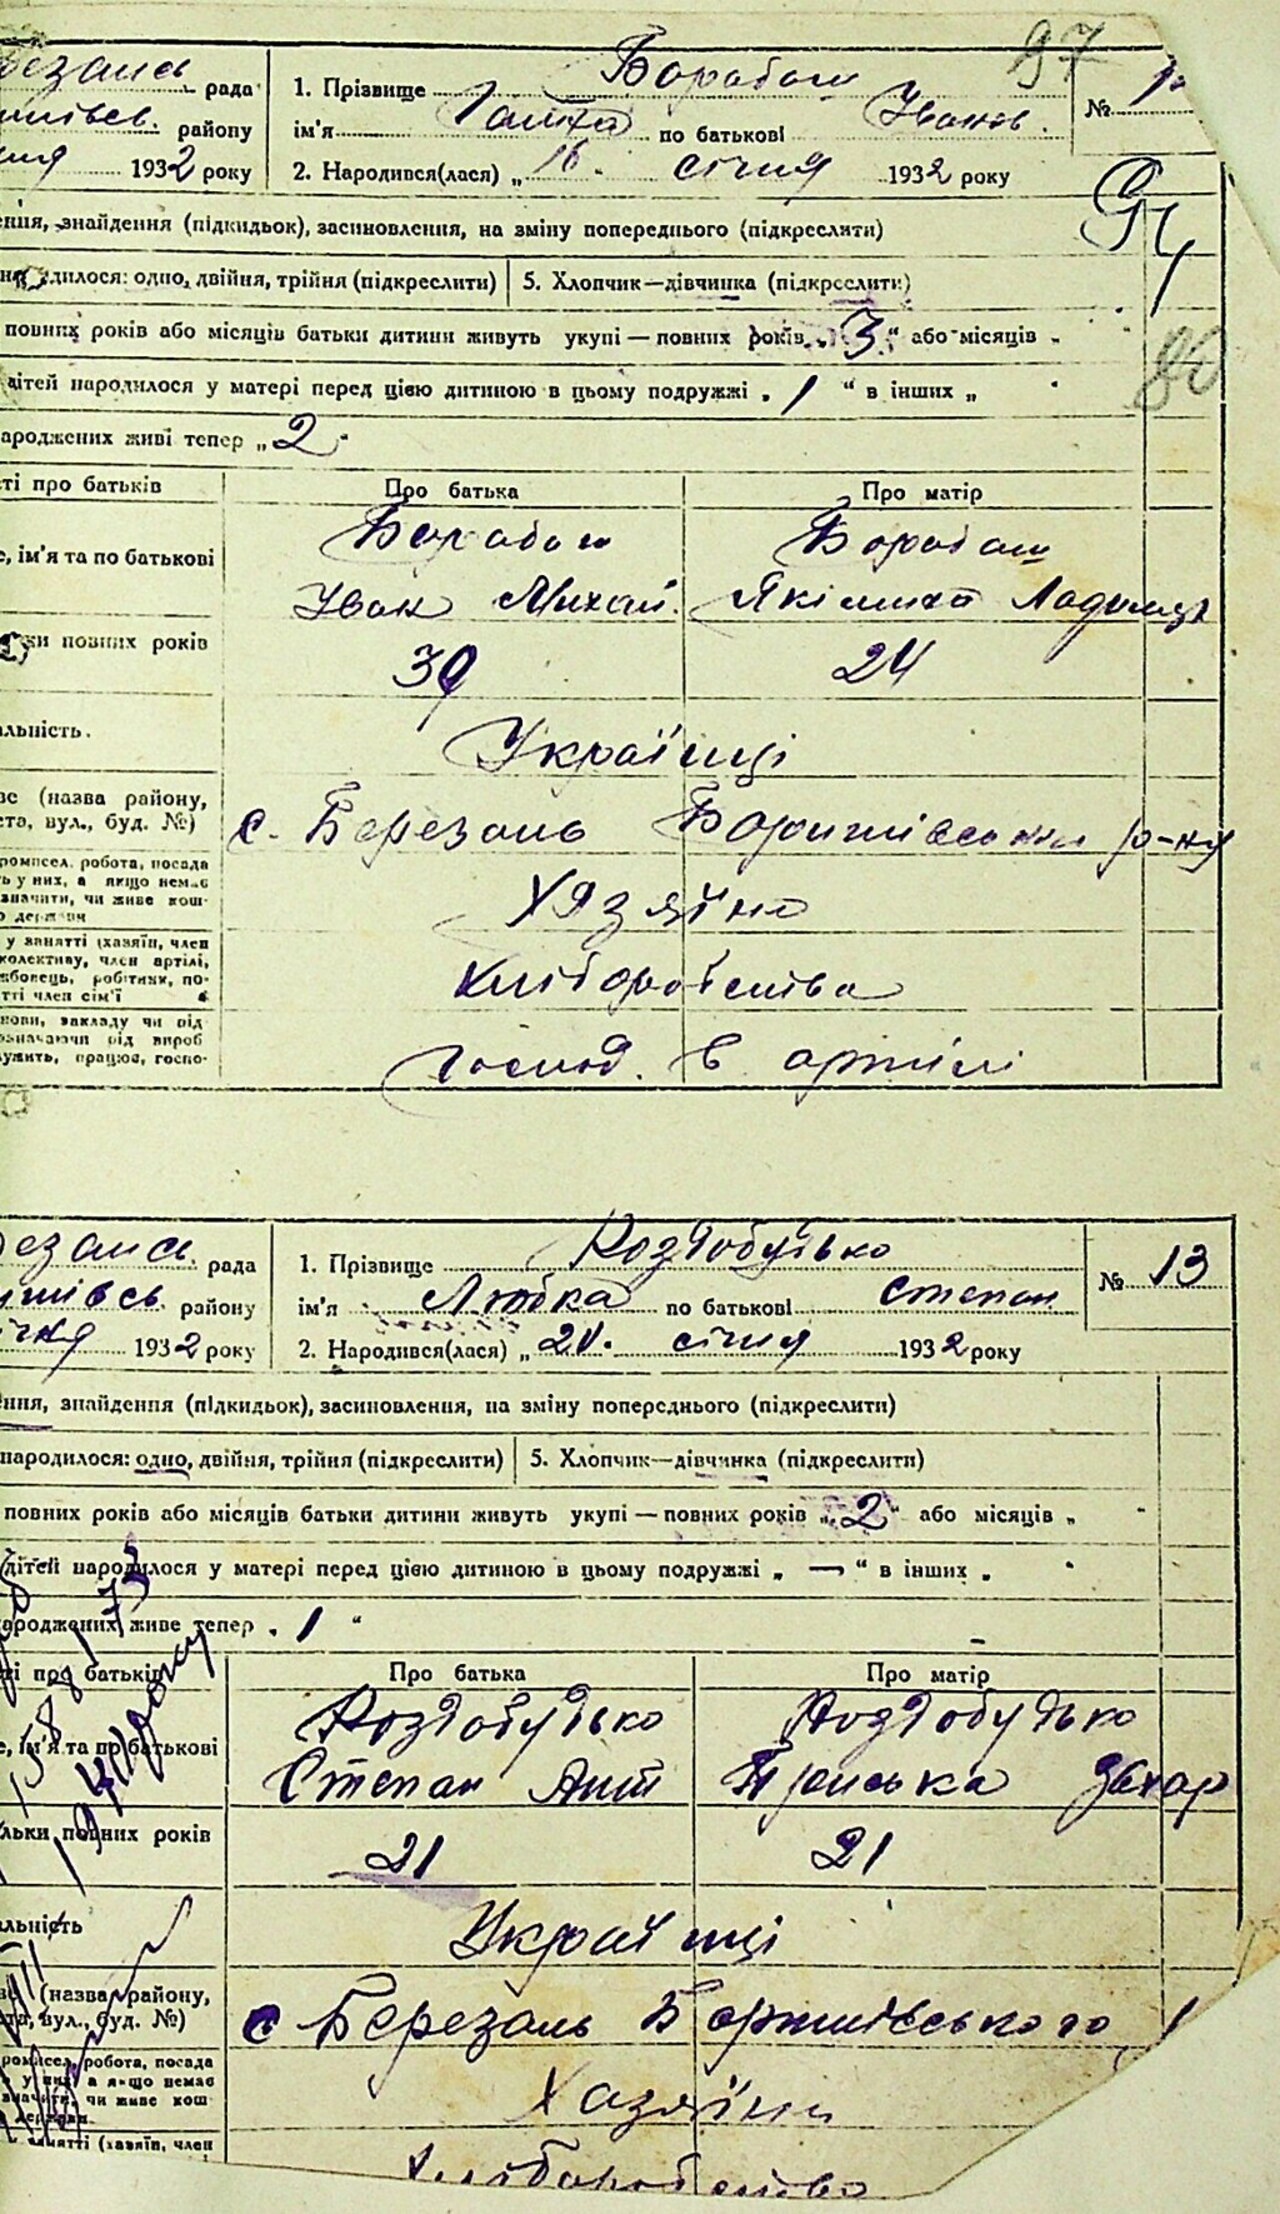 97
рада
1. Прізвище Борабаш
№
району
ім'я по батькові Іванов.
1932 року
2. Народився(лася) „ 16 . січня 1932 року
знайдення (підкидьок), засиновлення, на зміну попереднього (підкреслити)
одно, двійня, трійня (підкреслити)
5. Хлопчик—дівчинка (підкреслити)
повних років або місяців батьки дитини живуть укупі — повних років „ 3 “ або місяців „
дітей народилося у матері перед цією дитиною в цьому подружжі „ 1 “ в інших „
живі тепер „ 2 “
про батьків
Про батька
Про матір
ім'я та по батькові
Борабаш
Борабаш
Іван Михай.
повних років
39
24
Українці
(назва району,
вул., буд. №)
с. Березань Боришівський р-ну
робота, посада
у них, а якщо немає
чи живе кош-
держави
Хазяїни
у занятті (хазяїн, член
колективу, член артілі,
робітник, по-
член сім'ї
хліборобства
закладу чи від
від вироб
служить, працює, госпо-
господ. в артілі
рада
1. Прізвище Роздобудько
№ 13
району
ім'я Любка по батькові Степан
1932 року
2. Народився(лася) „ 21. січня 1932 року
знайдення (підкидьок), засиновлення, на зміну попереднього (підкреслити)
народилося: одно, двійня, трійня (підкреслити)
5. Хлопчик—дівчинка (підкреслити)
повних років або місяців батьки дитини живуть укупі — повних років „ 2 “ або місяців „
дітей народилося у матері перед цією дитиною в цьому подружжі „ — “ в інших „
живе тепер „ 1 “
про батьків
Про батька
Про матір
ім'я та по батькові
Роздобудько
Роздобудько
Степан Ант
Приська Захар
повних років
21
21
Українці
(назва району,
вул., буд. №)
с Березань Боришівського
робота, посада
у них, а якщо немає
чи живе кош-
держави
Хазяїни
занятті (хазяїн, член
хліборобство